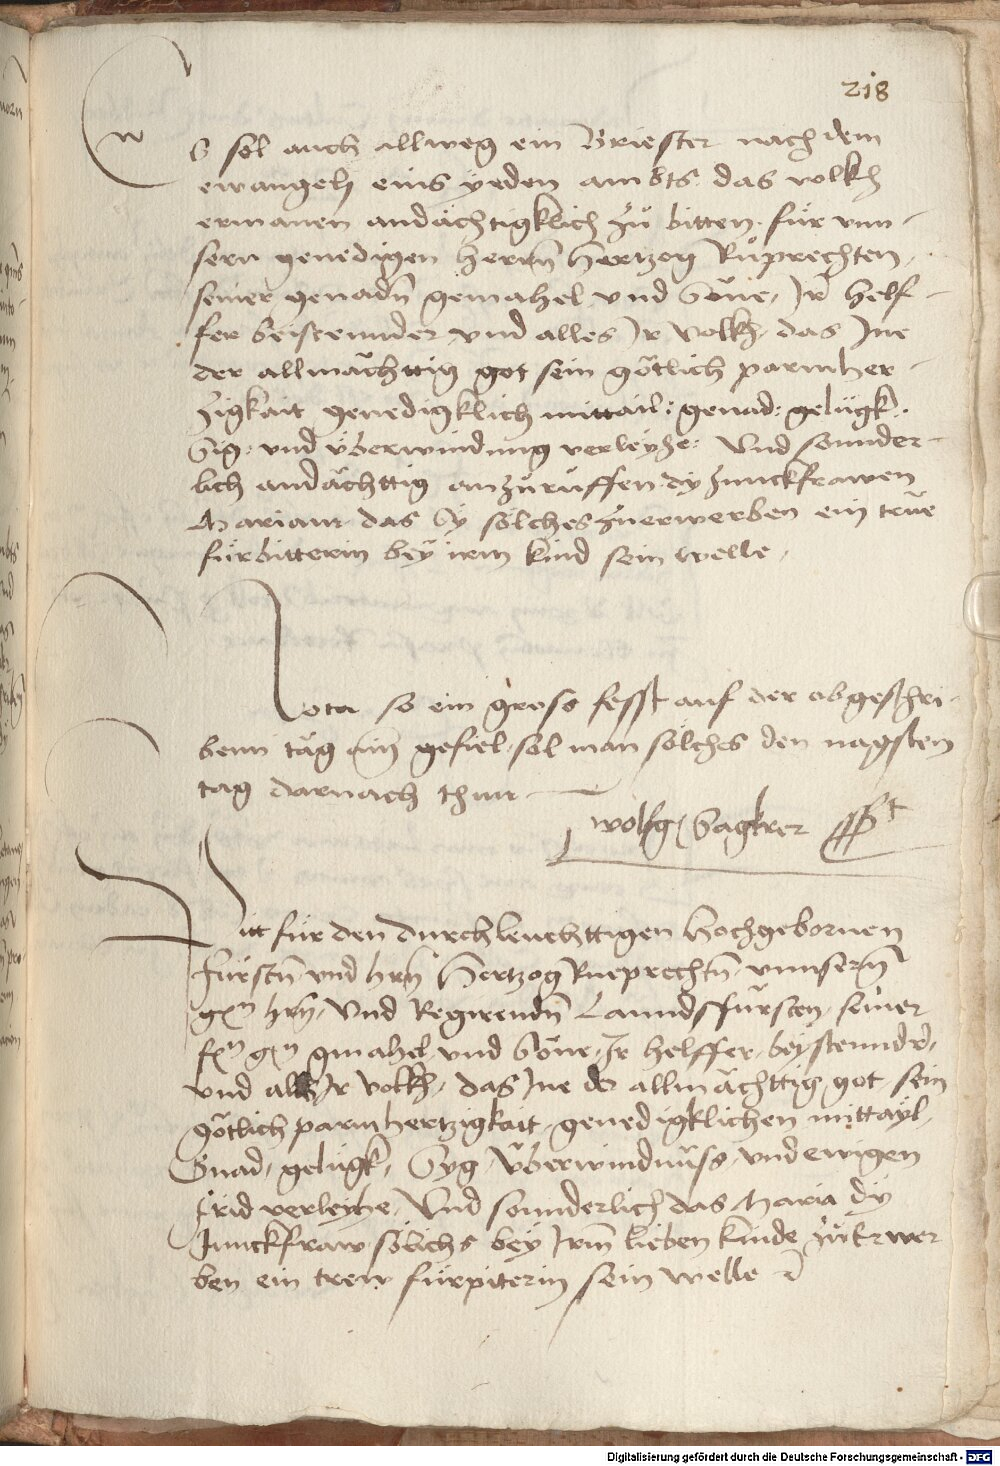 218
Es sol auch allweg ein Briester nach dem
ewangelj eins yeden ambts das volkh
ermanen andächtigklich zu bitten für vnn-
sern genedigen herrn hertzog Růprechten,
seiner genadn gemahel vnd Söne, Jr helf-
fer beistennder vnd alles Jr volkh, das Jne
der allmächttig got sein götlich parmher-
zigkait genedigklich mittail: genad: gelügk.
Sig: vnd überwindung verleyhe: Vnd sonnder-
lich andächttig anzuruffen dy Junckfrawen
Mariam das Sy sölches zuerwerben ein true
fürbitterin bey irm kind sein welle,
Nota so ein gross fesst auf der abgeschri-
benn täg ain gefiel, sol man sölches den nagsten
tag darnach thun
wolfg Sagkrer
Bitt für den durchleuchttigen hochgebornen
fürstn vnd hrn Hertzog Rueprechtn, vnnserm
gn hrn, Vnd Regirendn Lanndsfürsten, seiner
fn gn gmahel vnd Söne, Jr helffer, beystennder,
vnd alls Jr volkh, das Jne der allmächttig got sein
götlich parmhertzigkait, genedigklichen mittayl,
Gnad, gelügk, Syg, Überwindnüss, vnd ewigen
frid verleyhe, Vnd sonnderlich das Maria dy
Junckfraw sölichs bey Jrm lieben kinde zu Erwer
ben ein trew fürpiterin sein welle
Digitalisierung gefördert durch die Deutsche Forschungsgemeinschaft - DFG